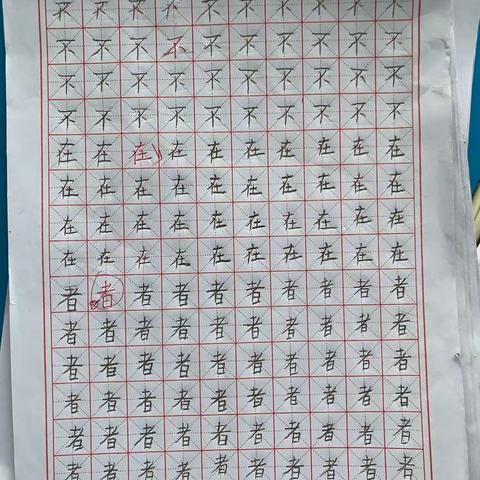 不不不不不不不不不不
不不不不不不不不不不
不不不不不不不不不不
不不不不不不不不不不
在在在在在在在在在在
在在在在在在在在在在
在在在在在在在在在在
在在在在在在在在在在
者者者者者者者者者者
者者者者者者者者者者
者者者者者者者者者者
者者者者者者者者者者
者者者者者者者者者者
者者者者者者者者者者